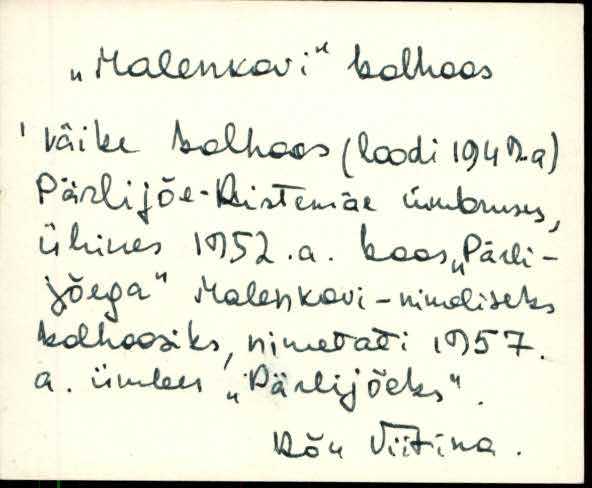 „Malenkovi" kolhoos
Väike kolhoos (loodi 1947.a)
Pärlijõe-Ristemäe ümbruses,
ühines 1952.a. koos „Pärli-
jõega" Malenkovi-nimeliseks
kolhoosiks, nimetati 1957.
a. ümber „Pärlijõeks".
Viitina.